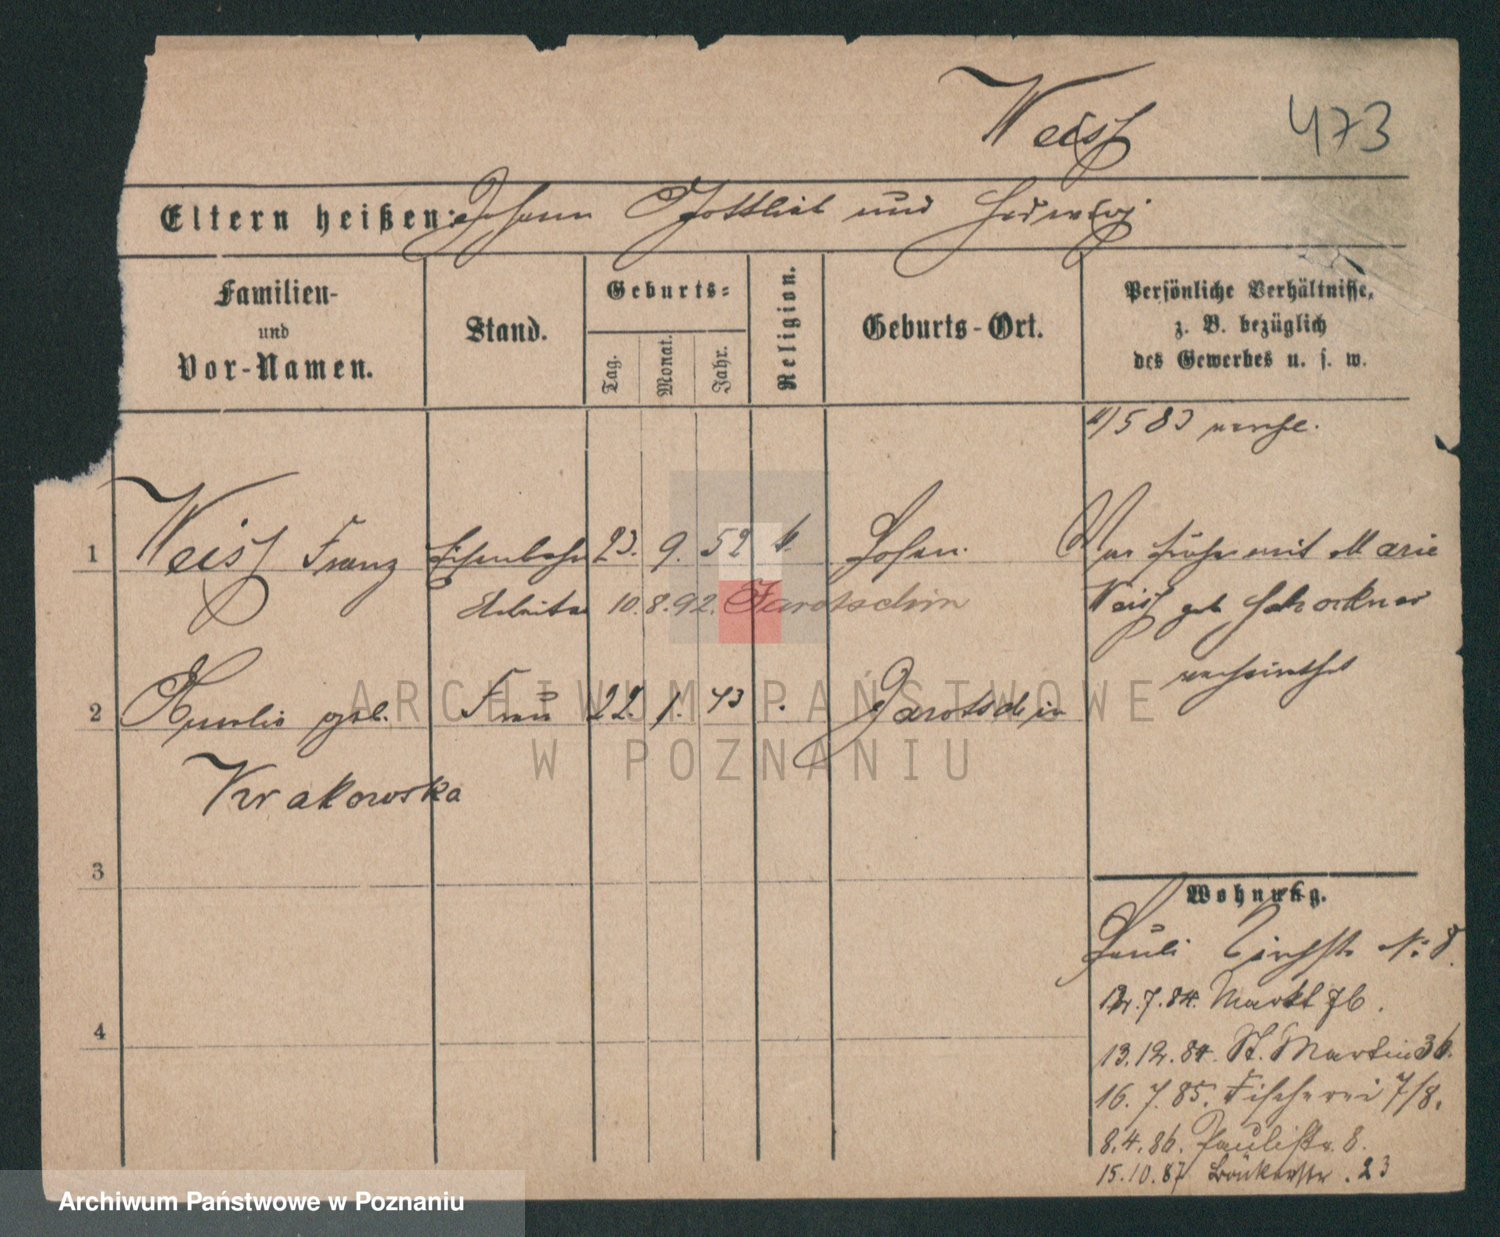 Weiss
473
Eltern heißen: Johann Gottlieb und Hedwig
Familien- und Vor-Namen.
Stand.
Geburts-
Tag.
Monat.
Jahr.
Religion.
Geburts-Ort.
Persönliche Verhältnisse,
z. B. bezüglich
des Gewerbes u. s. w.
1/5 83 verhl.
1 Weiss Franz Eisenbahn 23. 9. 52 k. Posen. War früher mit Marie
Arbeiter 10.8.92. Jarotschin Weiss geb.
verheirathet
2 geb. Frau 22. 1. 43 Jarotschin
Krakowska
3
4
Wohnung.
Pauli Kirchstr No 8.
12.7.84. Markt 76.
13.12.84. St. Martin 36.
16.7.85. Fischerei 7/8.
8.4.86. Paulistr. 8.
15.10.87 Bäckerstr. 23
ARCHIWUM PAŃSTWOWE
W POZNANIU
Archiwum Państwowe w Poznaniu